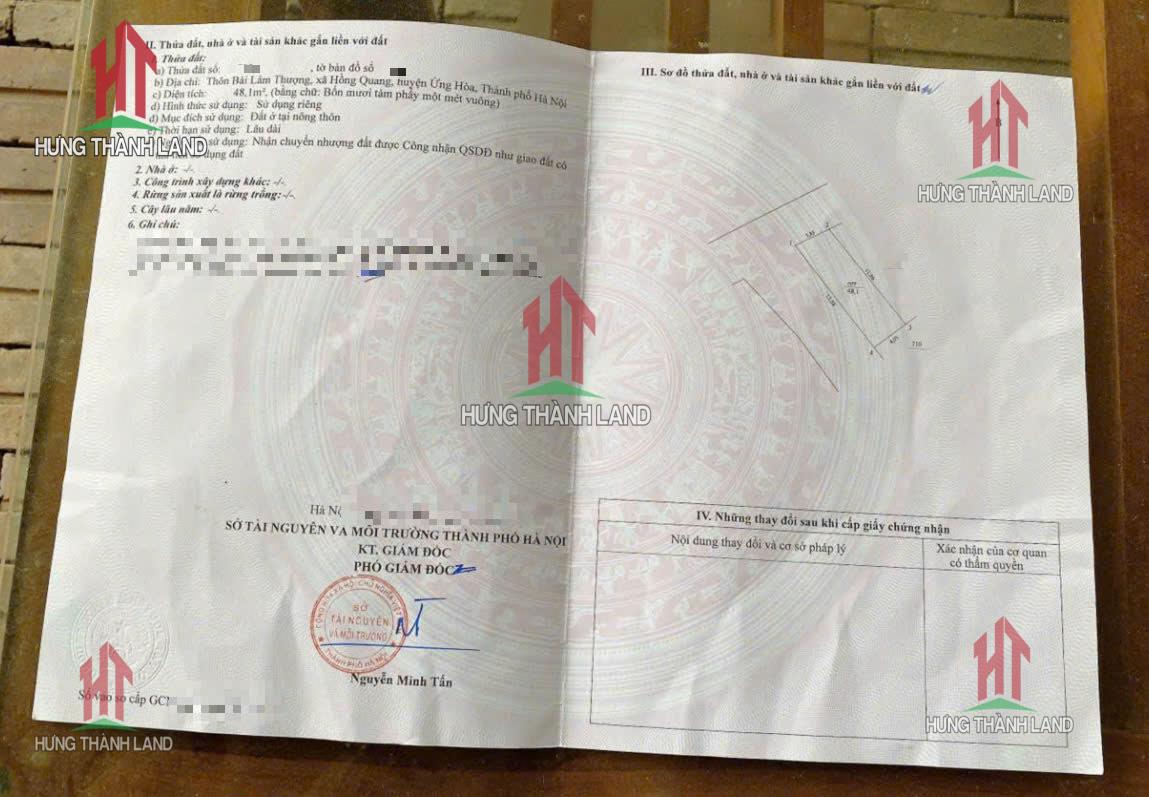 II. Thửa đất, nhà ở và tài sản khác gắn liền với đất
1. Thửa đất:
a) Thửa đất số: , tờ bản đồ số
b) Địa chỉ: Thôn Bài Lâm Thượng, xã Hồng Quang, huyện Ứng Hòa, Thành phố Hà Nội
c) Diện tích: 48.1m², (bằng chữ: Bốn mươi tám phẩy một mét vuông)
d) Hình thức sử dụng: Sử dụng riêng
đ) Mục đích sử dụng: Đất ở tại nông thôn
e) Thời hạn sử dụng: Lâu dài
sử dụng: Nhận chuyển nhượng đất được Công nhận QSDĐ như giao đất có
dụng đất
2. Nhà ở: -/-.
3. Công trình xây dựng khác: -/-.
4. Rừng sản xuất là rừng trồng: -/-.
5. Cây lâu năm: -/-.
6. Ghi chú:
Hà Nộ
SỞ TÀI NGUYÊN VÀ MÔI TRƯỜNG THÀNH PHỐ HÀ NỘI
KT. GIÁM ĐỐC
PHÓ GIÁM ĐỐC
CỘNG HÒA XÃ HỘI CHỦ NGHĨA VIỆT
SỞ
TÀI NGUYÊN
VÀ MÔI TRƯỜNG
THÀNH PHỐ HÀ NỘI
Nguyễn Minh Tấn
Số vào sổ cấp GCN
III. Sơ đồ thửa đất, nhà ở và tài sản khác gắn liền với đất
B
1
2
3
4
48.1
4.05
710
IV. Những thay đổi sau khi cấp giấy chứng nhận
Nội dung thay đổi và cơ sở pháp lý
Xác nhận của cơ quan
có thẩm quyền
HƯNG THÀNH LAND
HƯNG THÀNH LAND
HƯNG THÀNH LAND
HƯNG THÀNH LAND
HƯNG THÀNH LAND